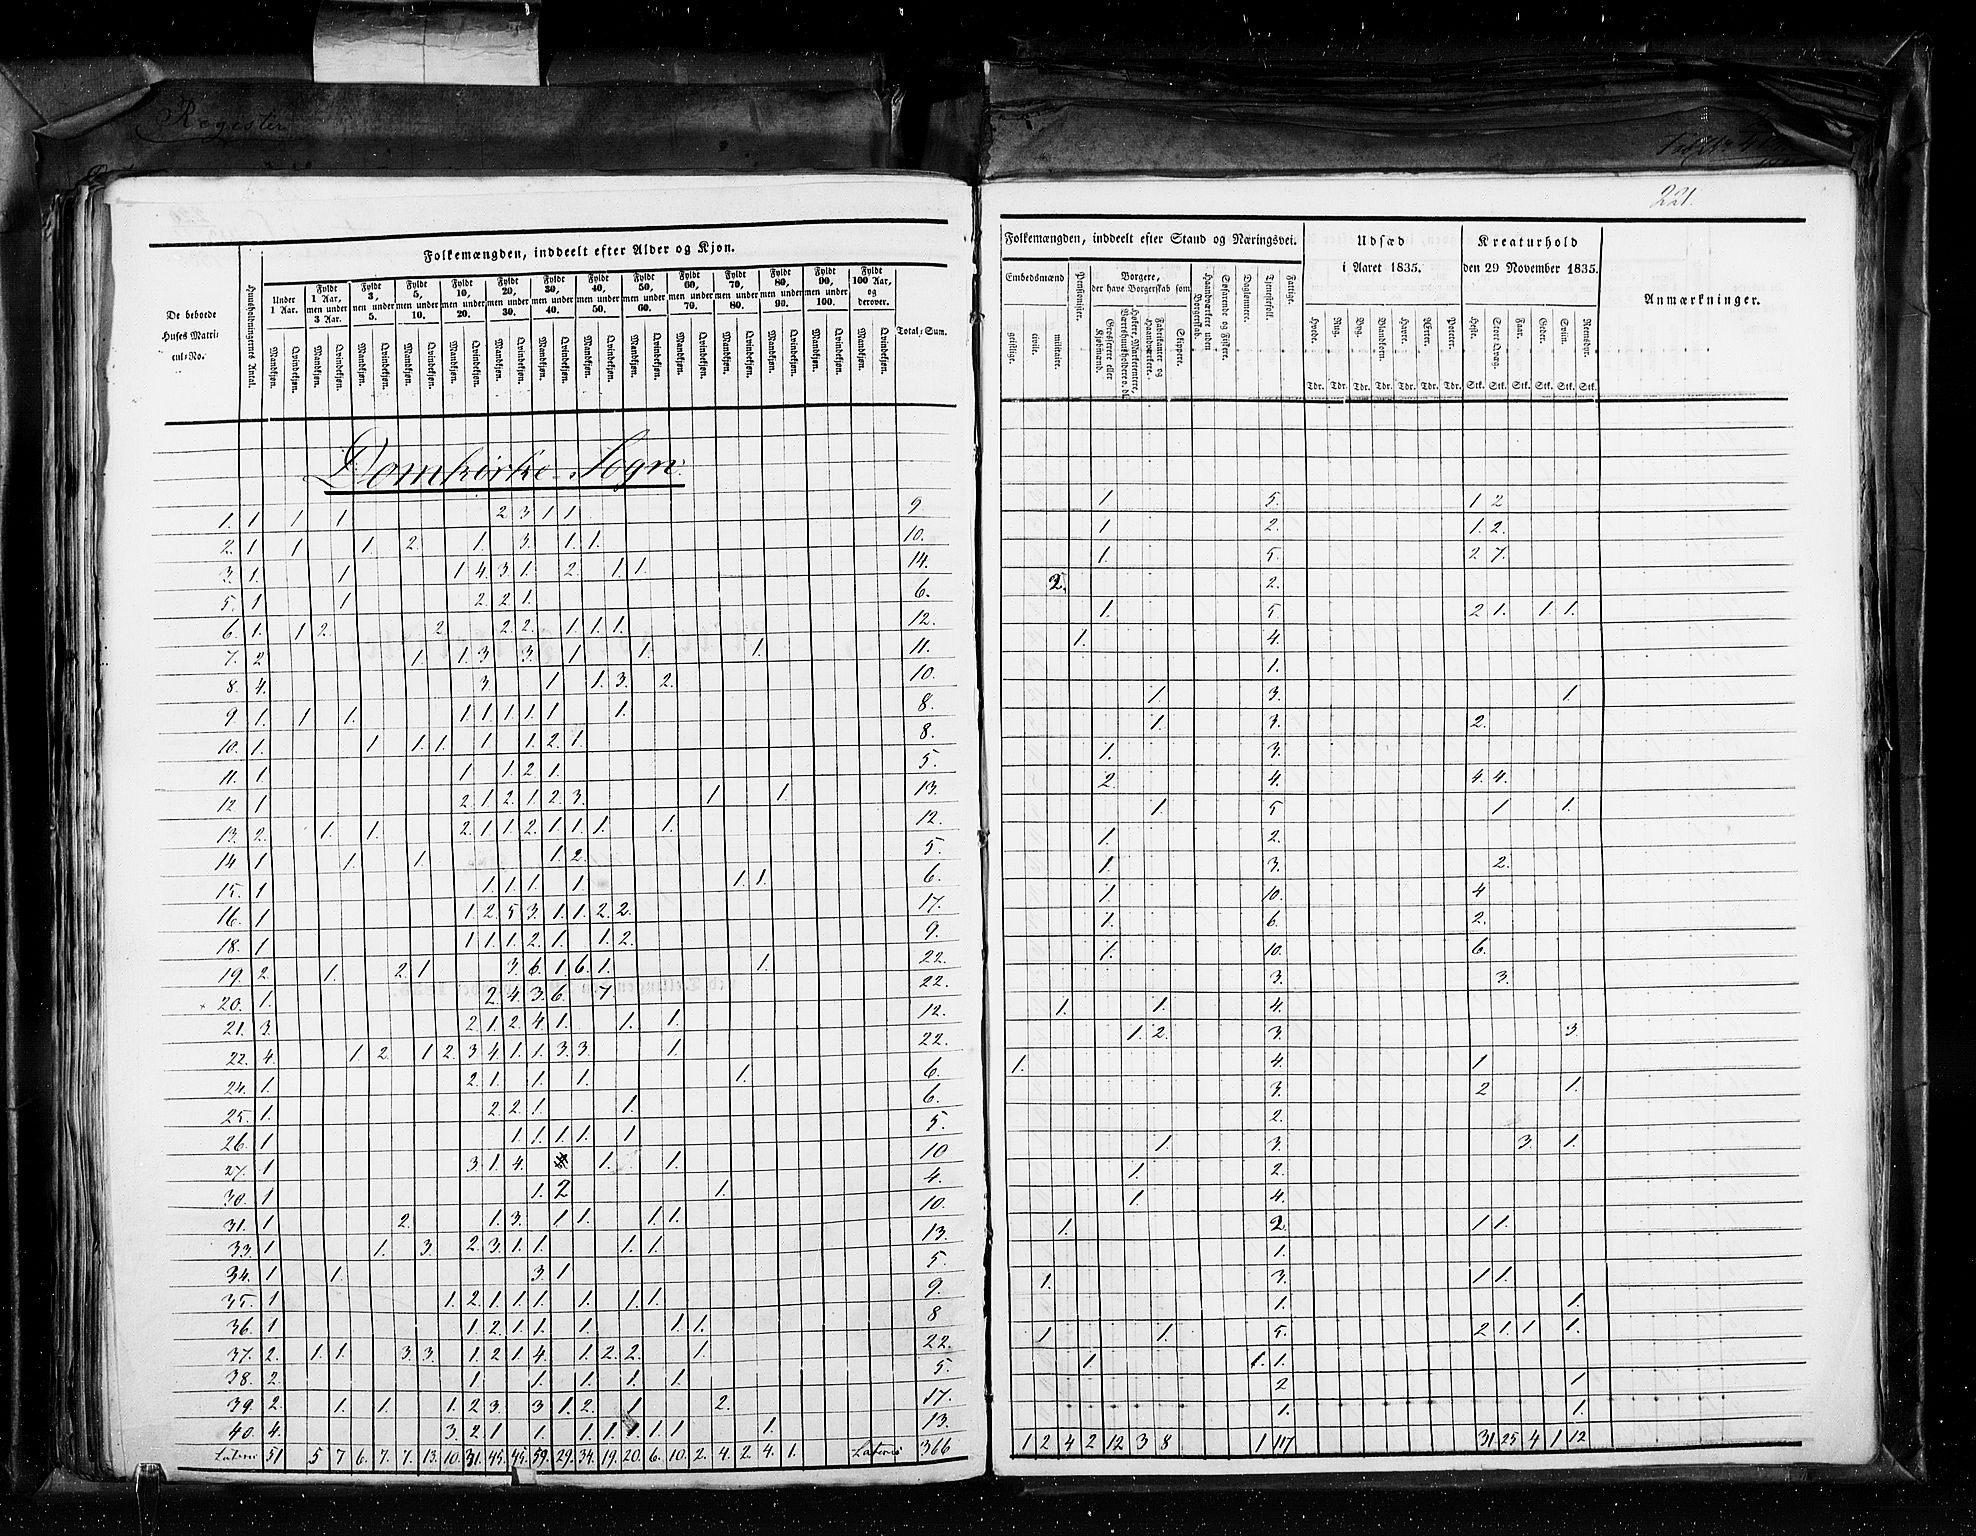 Register
221.
Folkemængden, inddeelt efter Alder og Kjøn.
De beboede Huses Matricul-No.
Huusholdningernes Antal.
Under 1 Aar.
Fyldt 1 Aar, men under 3 Aar.
Fyldt 3, men under 5.
Fyldt 5, men under 10.
Fyldt 10, men under 20.
Fyldt 20, men under 30.
Fyldt 30, men under 40.
Fyldt 40, men under 50.
Fyldt 50, men under 60.
Fyldt 60, men under 70.
Fyldt 70, men under 80.
Fyldt 80, men under 90.
Fyldt 90, men under 100.
Fyldt 100 Aar, og derover.
Total-Sum.
Mandkjøn. Qvindekjøn.
Domkirke-Sogn.
1. 1 1 1 2 3 1 1 9
2. 1 1 1. 2. 1. 3. 1. 1. 10.
3. 1. 1 1 4. 3 1. 2. 1. 1. 14.
5. 1 1 2. 2 1. 6.
6. 1. 1 2. 2. 2 2. 1. 1. 1. 12.
7. 2 1. 1. 3 3. 1 1. 1. 11.
8. 4. 3. 1 1. 3. 2. 10.
9. 1. 1 1. 1. 1. 1. 1. 1 1. 8.
10. 1. 1 1. 1. 1 1. 2. 1. 8.
11. 1 1 1. 2 1. 5.
12. 1 2. 1. 2. 1. 2. 3. 1 1. 13.
13. 2. 1. 1. 2. 1. 1. 2. 1. 1. 1. 1. 12.
14. 1 1. 1. 1. 2. 5.
15. 1 1. 1. 1. 1 1. 1. 6.
16. 1 1. 2. 5 3. 1. 1. 2. 2. 17.
18. 1 1 1. 1. 2. 1. 1. 2. 9.
19. 2. 1. 2. 1 3. 6. 1. 6. 1. 1. 22.
20. 1. 2. 4. 3. 6. 7. 22.
21. 3. 2. 1. 2. 4 1. 1. 1. 12.
22. 4. 1. 2 1 2. 3 4 1. 1. 3. 3. 1. 22.
24. 1. 2. 1. 1. 1. 1. 6.
25. 1. 2. 2. 1. 1. 6.
26. 1 1. 1. 1. 1. 1 5.
27. 1 3 1. 4. 1. 1. 10
30. 1 1. 2 1. 4.
31. 1 2. 1. 3. 1 1. 1 1. 10.
33. 1 1. 3. 2. 3. 1. 1. 1. 1. 13.
34. 1 1. 3. 1 5.
35. 1 1. 2. 1. 1. 1. 1. 1. 1. 9.
36. 1 1. 2. 1. 1. 1. 1. 1. 8
37. 2. 1. 1. 3. 3. 1. 2 1. 4. 1. 2. 2. 1. 22.
38. 2. 1. 1. 1. 1. 1. 5.
39. 2. 1. 1. 1. 2 3. 3 1. 2. 1 2. 17.
40. 4. 3. 2. 1 1. 1. 1. 1. 1. 1 1. 13.
Lateris 51 5 7 6. 7. 7. 13. 10. 31. 45. 45. 59. 29. 34. 19. 20. 6. 10. 2. 4. 2. 4. 1. Lateris 366
Folkemængden, inddeelt efter Stand og Næringsvei.
Udsæd i Aaret 1835.
Kreaturhold den 29 November 1835.
Anmærkninger.
Embedsmænd
geistlige. civile. militaire.
Pensionister.
Borgere, der have Borgerskab som
Grosserere eller Kjøbmænd.
Høkere, Marketentere, Værtshuusholdere o. dl.
Fabrikanter og Haandværkere.
Skippere.
Haandværkere uden Borgerskab.
Søfarende og Fiskere.
Daglønnere.
Tjenestefolk.
Fattige.
Hvede. Rug. Byg. Blandkorn. Havre. Ærter. Poteter.
Tdr. Tdr. Tdr. Tdr. Tdr. Tdr. Tdr.
Heste. Stort Qvæg. Faar. Geder. Sviin. Rensdyr.
Stk. Stk. Stk. Stk. Stk. Stk.
1. 5. 1 2
1 2. 1. 2.
1. 5. 2 7.
2. 2.
1. 5 2 1. 1 1.
1. 4.
1.
1. 3. 1.
1. 3. 2.
1. 3.
2. 4. 4. 4.
1. 5 1 1.
1. 2.
1. 3. 2.
1. 10. 4
1. 6. 2.
1. 10. 6.
3. 3.
1. 1. 4.
1. 2. 3. 3.
1. 4. 1
3. 2 1.
2.
1 3. 3. 1.
1. 2.
1. 4.
1. 2. 1 1.
1.
1. 3. 1 1.
1. 1.
1. 1. 5. 2 1. 1 1.
1 1. 1.
2 1
1. 1.
1 2 4 2 12 3 8 1 117 31 25 4 1 12